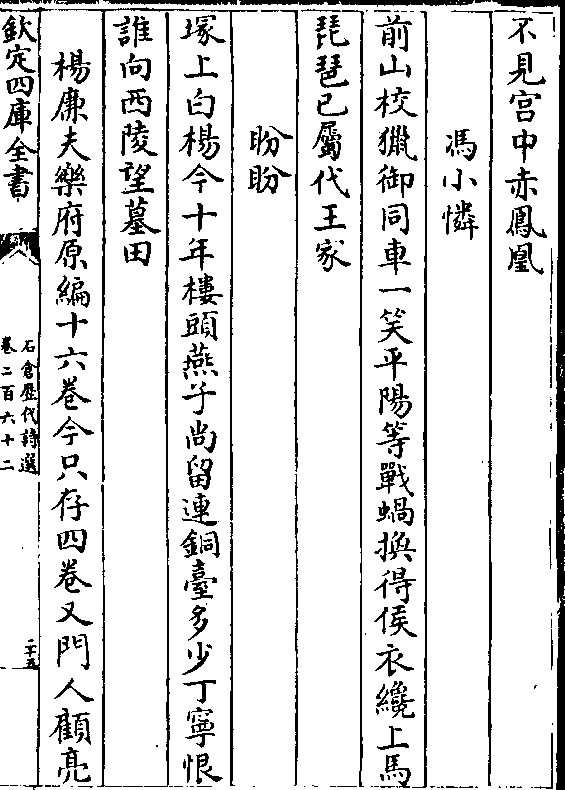 不見宫中赤鳳凰
馮小憐
前山校獵御同車一笑平陽等戰蝸換得侯衣纔上馬
琵琶已屬代王家
盼盼
塚上白楊今十年樓頭燕子尚留連銅臺多少丁寧恨
誰向西陵望墓田
楊廉夫樂府原編十六卷今只存四卷又門人顧亮
欽定四庫全書
石倉歷代詩選
卷二百六十二
二十五